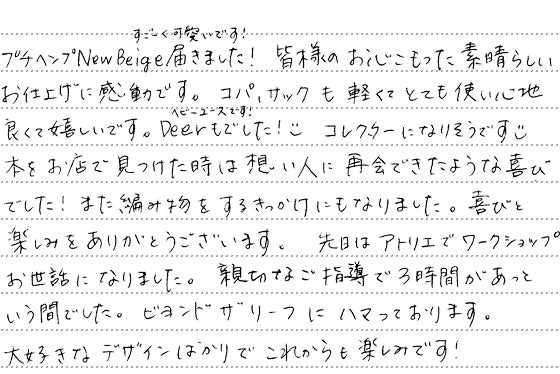 すごーく可愛いです!
プチヘンプNewBeige届きました! 皆様のお心じこもった素晴らしい
お仕上げに感動です。コパ,サックも軽くてとても使い心地
ベビーユースです!
良くて嬉しいです。Deerもでした!☺ コレクターになりそうです☺
本をお店で見つけた時は想い人に再会できたような喜び
でした!また編み物をするきっかけにもなりました。喜びと
楽しみをありがとうございます。 先日はアトリエでワークショップ
お世話になりました。親切なご指導で3時間があっと
いう間でした。ビヨンドザリーフにハマっております。
大好きなデザインばかりでこれからも楽しみです!